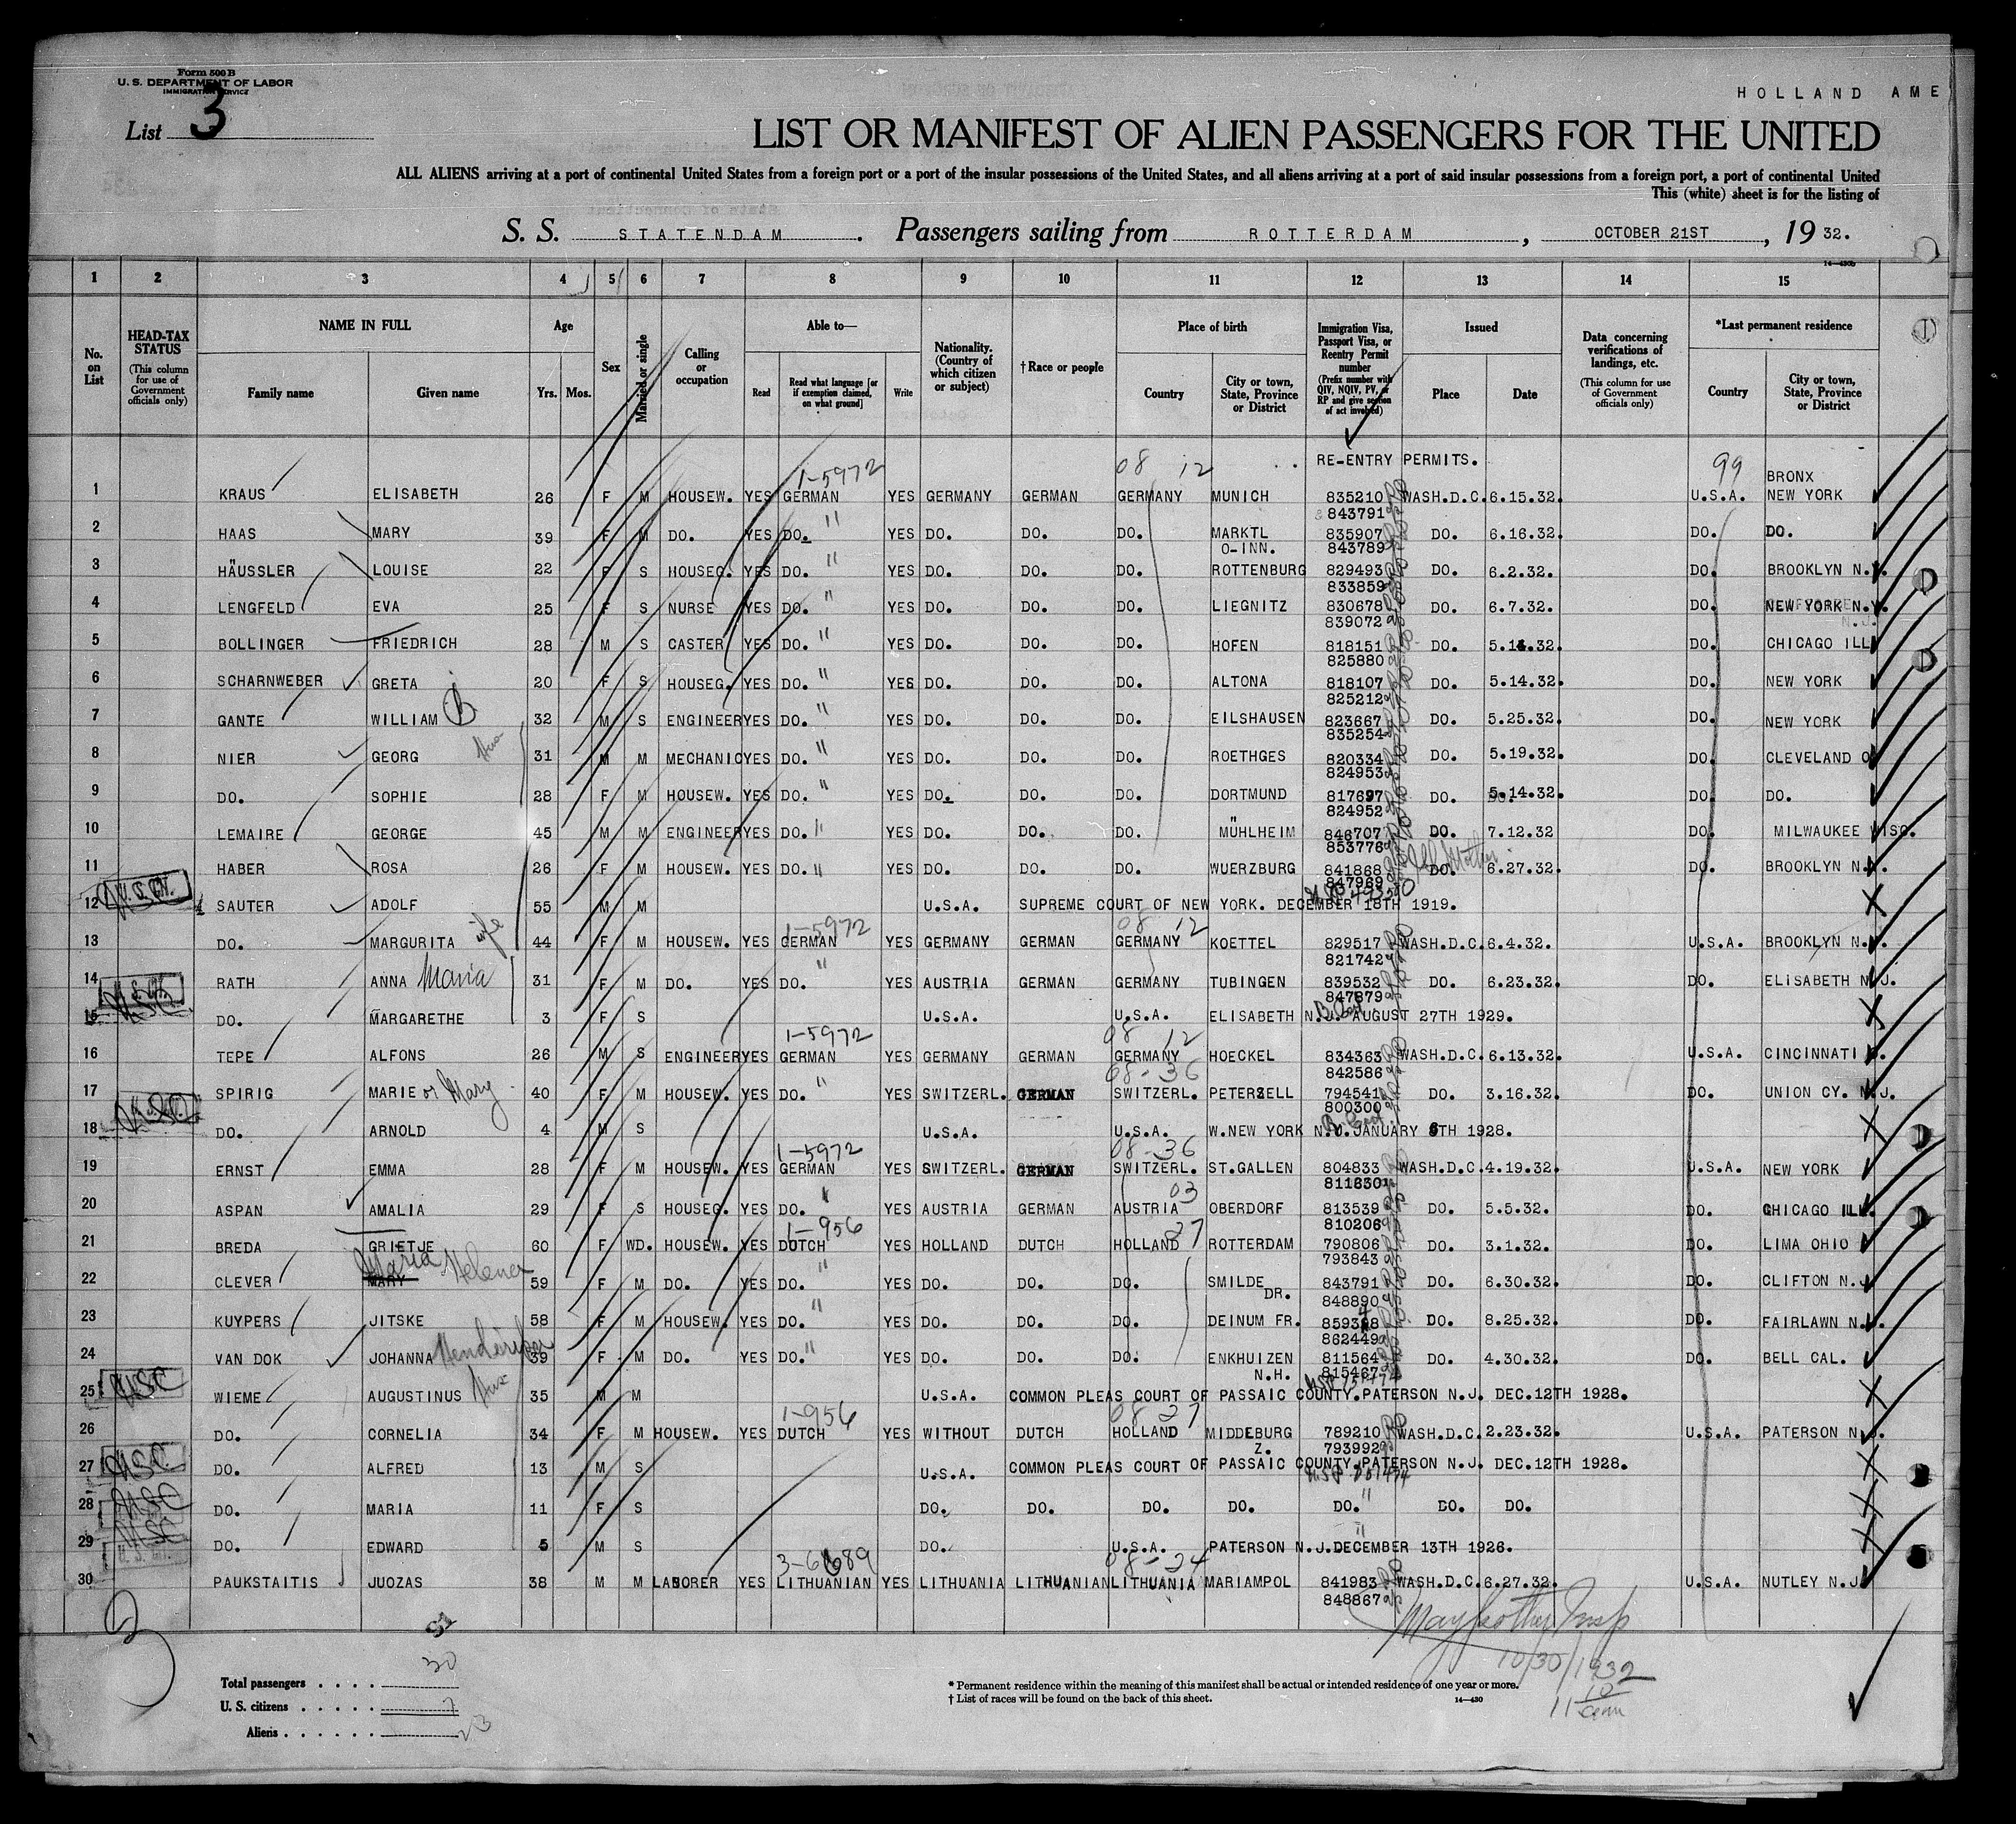 Form 500 B
U. S. DEPARTMENT OF LABOR
IMMIGRATION SERVICE
HOLLAND AME
List 3
LIST OR MANIFEST OF ALIEN PASSENGERS FOR THE UNITED
ALL ALIENS arriving at a port of continental United States from a foreign port or a port of the insular possessions of the United States, and all aliens arriving at a port of said insular possessions from a foreign port, a port of continental United
This (white) sheet is for the listing of
S. S. STATENDAM. Passengers sailing from ROTTERDAM, OCTOBER 21ST, 19 32.
1 2 3 4 5 6 7 8 9 10 11 12 13 14 15
No. on List
HEAD-TAX STATUS (This column for use of Government officials only)
NAME IN FULL Family name Given name
Age Yrs. Mos.
Sex
Married or single
Calling or occupation
Able to— Read Read what language [or if exemption claimed, on what ground] Write
Nationality. (Country of which citizen or subject)
† Race or people
Place of birth Country City or town, State, Province or District
Immigration Visa, Passport Visa, or Reentry Permit number (Prefix number with QIV, NQIV, PV, or RP and give section of act involved)
Issued Place Date
Data concerning verifications of landings, etc. (This column for use of Government officials only)
*Last permanent residence Country City or town, State, Province or District
RE-ENTRY PERMITS.
1-5972 08 12 99 BRONX
1 KRAUS ELISABETH 26 F M HOUSEW. YES GERMAN YES GERMANY GERMAN GERMANY MUNICH 835210 WASH.D.C. 6.15.32. U.S.A. NEW YORK
843791
2 HAAS MARY 39 F M DO. YES DO. " YES DO. DO. DO. MARKTL 835907 DO. 6.16.32. DO. DO.
O-INN. 843789
3 HÄUSSLER LOUISE 22 F S HOUSEG. YES DO. " YES DO. DO. DO. ROTTENBURG 829493 DO. 6.2.32. DO. BROOKLYN N.Y.
833859
4 LENGFELD EVA 25 F S NURSE YES DO. " YES DO. DO. DO. LIEGNITZ 830678 DO. 6.7.32. DO. NEW YORK N.Y.
839072
5 BOLLINGER FRIEDRICH 28 M S CASTER YES DO. " YES DO. DO. DO. HOFEN 818151 DO. 5.14.32. DO. CHICAGO ILL
825880
6 SCHARNWEBER GRETA 20 F S HOUSEG. YES DO. " YES DO. DO. DO. ALTONA 818107 DO. 5.14.32. DO. NEW YORK
825212
7 GANTE WILLIAM 32 M S ENGINEER YES DO. " YES DO. DO. DO. EILSHAUSEN 823667 DO. 5.25.32. DO. NEW YORK
835254
8 NIER GEORG 31 M M MECHANIC YES DO. " YES DO. DO. DO. ROETHGES 820334 DO. 5.19.32. DO. CLEVELAND O
824953
9 DO. SOPHIE 28 F M HOUSEW. YES DO. " YES DO. DO. DO. DORTMUND 817697 DO. 5.14.32. DO. DO.
824952
10 LEMAIRE GEORGE 45 M M ENGINEER YES DO. " YES DO. DO. DO. MÜHLHEIM 846707 DO. 7.12.32 DO. MILWAUKEE WISC.
853776
11 HABER ROSA 26 F M HOUSEW. YES DO. " YES DO. DO. DO. WUERZBURG 841868 DO. 6.27.32. DO. BROOKLYN N.Y.
847969
12 SAUTER ADOLF 55 M M U.S.A. SUPREME COURT OF NEW YORK. DECEMBER 18TH 1919.
wife 1-5972 08 12
13 DO. MARGURITA 44 F M HOUSEW. YES GERMAN YES GERMANY GERMAN GERMANY KOETTEL 829517 WASH.D.C. 6.4.32. U.S.A. BROOKLYN N.Y.
821742
14 RATH ANNA Maria 31 F M DO. YES DO. " YES AUSTRIA GERMAN GERMANY TUBINGEN 839532 DO. 6.23.32. DO. ELISABETH N.J.
847879
15 DO. MARGARETHE 3 F S U.S.A. U.S.A. ELISABETH N.J. AUGUST 27TH 1929.
1-5972 08 12
16 TEPE ALFONS 26 M S ENGINEER YES GERMAN YES GERMANY GERMAN GERMANY HOECKEL 834363 WASH.D.C. 6.13.32. U.S.A. CINCINNATI
842586
08-36
17 SPIRIG MARIE or Mary 40 F M HOUSEW. YES DO. " YES SWITZERL. GERMAN SWITZERL. PETERZELL 794541 DO. 3.16.32. DO. UNION CY. N.J.
800300
18 DO. ARNOLD 4 M S U.S.A. U.S.A. W.NEW YORK N.J. JANUARY 6TH 1928.
1-5972 08-36
19 ERNST EMMA 28 F M HOUSEW. YES GERMAN YES SWITZERL. GERMAN SWITZERL. ST.GALLEN 804833 WASH.D.C. 4.19.32. U.S.A. NEW YORK
811830
03
20 ASPAN AMALIA 29 F S HOUSEG. YES DO. YES AUSTRIA GERMAN AUSTRIA OBERDORF 813539 DO. 5.5.32. DO. CHICAGO ILL.
810206
1-956 27
21 BREDA GRIETJE 60 F WD. HOUSEW. YES DUTCH YES HOLLAND DUTCH HOLLAND ROTTERDAM 790806 DO. 3.1.32. DO. LIMA OHIO
793843
Maria Helena
22 CLEVER MARY 59 F M DO. YES DO. " YES DO. DO. DO. SMILDE 843791 DO. 6.30.32. DO. CLIFTON N.J
DR. 848890
23 KUYPERS JITSKE 58 F M HOUSEW. YES DO. " YES DO. DO. DO. DEINUM FR. 859348 DO. 8.25.32. DO. FAIRLAWN N.J.
862449
24 VAN DOK JOHANNA 39 F M DO. YES DO. " YES DO. DO. DO. ENKHUIZEN 811564 DO. 4.30.32. DO. BELL CAL.
N.H. 815467
25 USC WIEME AUGUSTINUS 35 M M U.S.A. COMMON PLEAS COURT OF PASSAIC COUNTY.PATERSON N.J. DEC.12TH 1928.
1-956 08 27
26 DO. CORNELIA 34 F M HOUSEW. YES DUTCH YES WITHOUT DUTCH HOLLAND MIDDEBURG 789210 WASH.D.C. 2.23.32. U.S.A. PATERSON N.J.
Z. 793992
27 USC DO. ALFRED 13 M S U.S.A. COMMON PLEAS COURT OF PASSAIC COUNTY.PATERSON N.J. DEC.12TH 1928.
28 USC DO. MARIA 11 F S DO. DO. DO. DO. DO. " DO. DO.
29 USC DO. EDWARD 5 M S DO. U.S.A. PATERSON N.J. DECEMBER 13TH 1926.
08-24
30 PAUKSTAITIS JUOZAS 38 M M LABORER YES LITHUANIAN YES LITHUANIA LITHUANIAN LITHUANIA MARIAMPOL 841983 WASH.D.C. 6.27.32. U.S.A. NUTLEY N.J.
848867
3
10/30/1932
Total passengers . . . . 30
U. S. citizens . . . . . 7
Aliens . . . . . . 23
* Permanent residence within the meaning of this manifest shall be actual or intended residence of one year or more.
† List of races will be found on the back of this sheet.
14—430